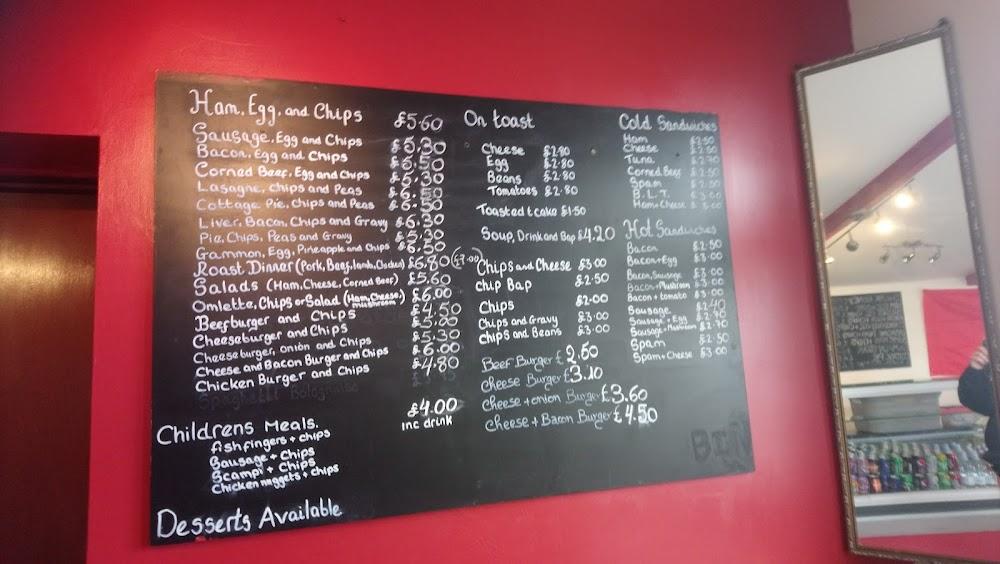 Ham, Egg, and Chips £5.60
Sausage, Egg and Chips £5.30
Bacon, Egg and Chips £5.50
Corned Beef, Egg and Chips £5.30
Lasagne, Chips and Peas £6.50
Cottage Pie, Chips and Peas £6.50
Liver, Bacon, Chips and Gravy £6.30
Pie, Chips, Peas and Gravy £5.30
Gammon, Egg, Pineapple and Chips £6.50
Roast Dinner (Pork, Beef, Lamb, Chicken) £6.80 (£7.00)
Salads (Ham, Cheese, Corned Beef) £5.60
Omlette, Chips or Salad (Ham, Cheese, mushroom) £6.00
Beefburger and Chips £4.50
Cheeseburger and Chips £5.00
Cheeseburger, onion and Chips £5.30
Cheese and Bacon Burger and Chips £6.00
Chicken Burger and Chips £4.80
Spaghetti Bolognaise
Childrens Meals. £4.00
inc drink
fishfingers + chips
Sausage + Chips
Scampi + Chips
Chicken nuggets + chips
Desserts Available
On toast
Cheese £2.80
Egg £2.80
Beans £2.80
Tomatoes £2.80
Toasted t cake £1.50
Soup, Drink and Bap £4.20
Chips and Cheese £3.00
Chip Bap £2.50
Chips £2.00
Chips and Gravy £3.00
Chips and Beans £3.00
Beef Burger £2.50
Cheese Burger £3.10
Cheese + onion Burger £3.60
Cheese + Bacon Burger £4.50
Cold Sandwiches
Ham £2.50
Cheese £2.50
Tuna £2.70
Corned Beef £2.50
Spam £2.50
B.L.T. £3.00
Ham + Cheese £3.00
Hot Sandwiches
Bacon £2.50
Bacon + Egg £3.00
Bacon, Sausage £3.00
Bacon + Mushroom £3.00
Bacon + tomato £3.00
Sausage £2.40
Sausage + Egg £2.70
Sausage + Mushroom £2.70
Spam £2.50
Spam + Cheese £3.00